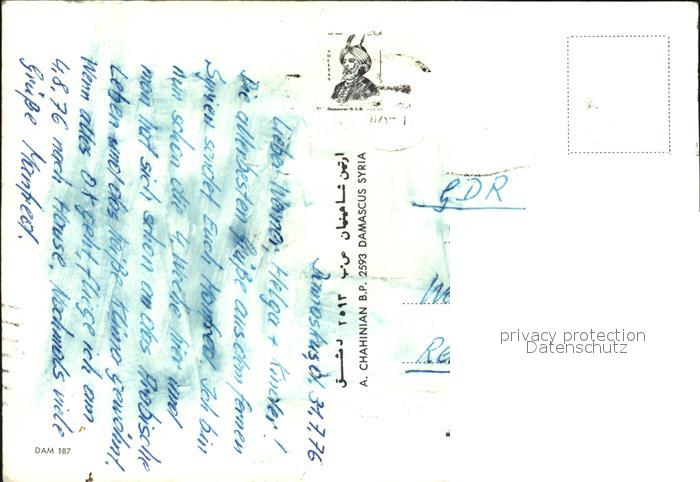 Damaskus, d. 31.7.76
Liebe Mama, Helga + Kinder!
Die allerbesten Grüße aus dem fernen
Syrien sendet Euch Manfred. Ich bin
nun schon die 4. Woche hier und
man hat sich schon an das Arabische
Leben und das heiße Klima gewöhnt.
Wenn alles O.K. geht, fliege ich am
4.8.76 nach Hause. Nochmals viele
Grüße Manfred.
ارتين شاهينيان ص.ب ٢٥٩٣ دمشق
A. CHAHINIAN B.P. 2593 DAMASCUS SYRIA
GDR
DAM 187
privacy protection
Datenschutz